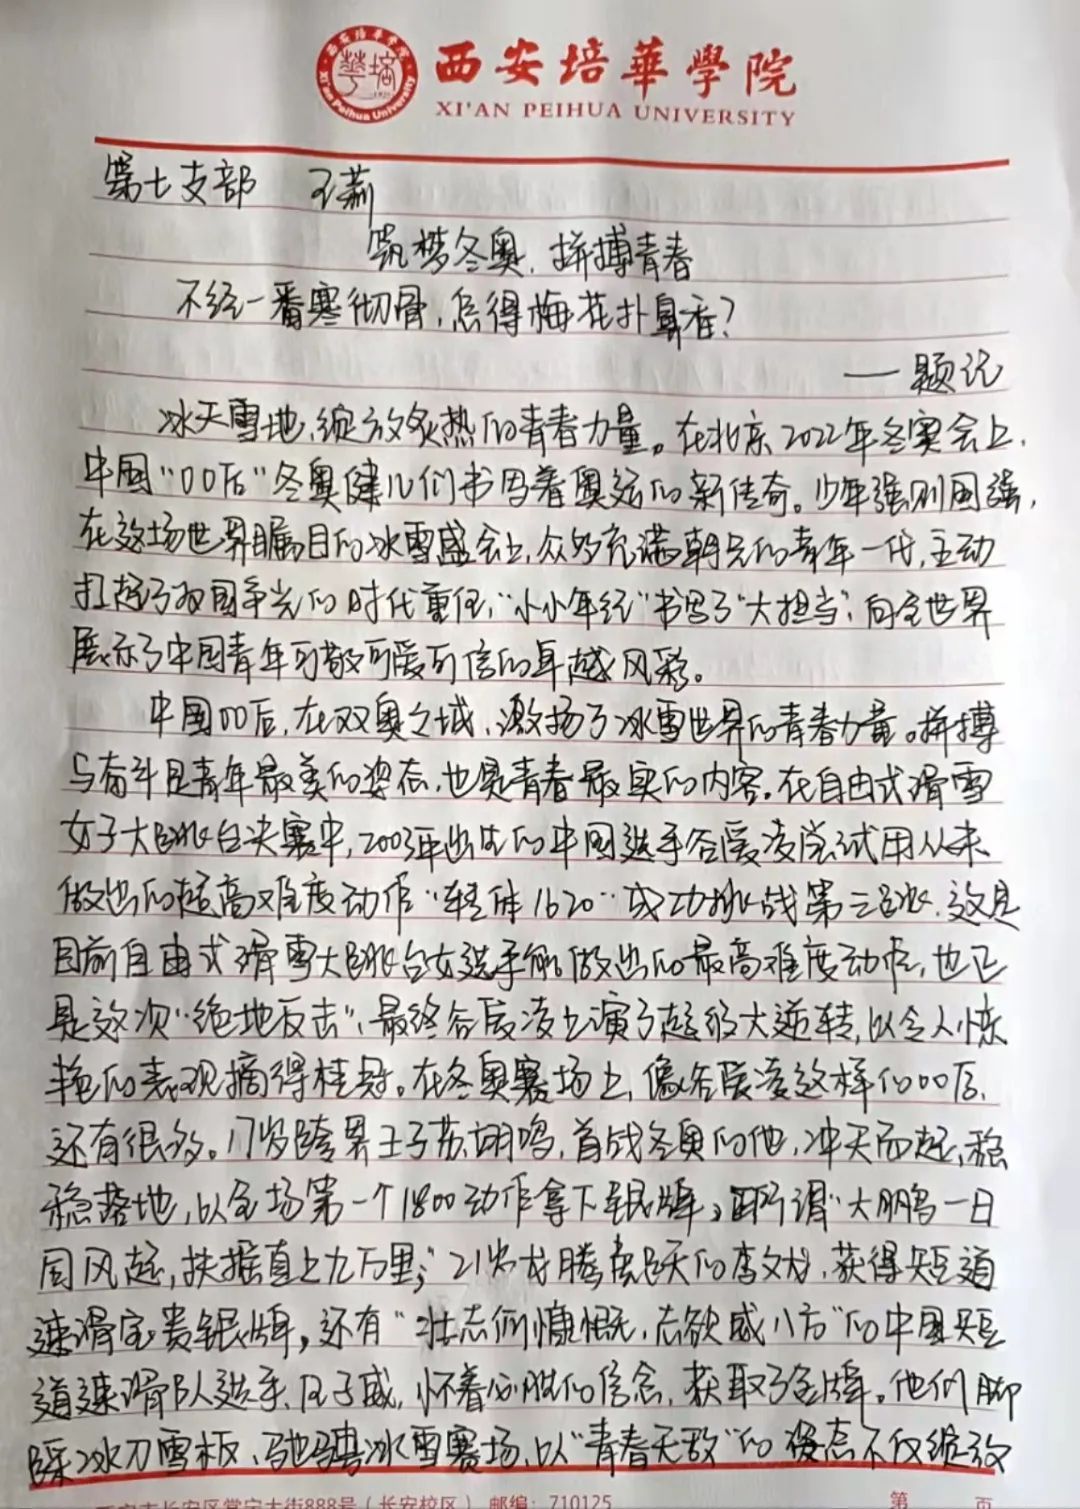 西安培華學院
XI'AN PEIHUA UNIVERSITY
第七支部 王莉
筑梦冬奥，拼搏青春
不经一番寒彻骨，怎得梅花扑鼻香？
——题记
冰天雪地，绽放炙热的青春力量。在北京2022年冬奥会上，
中国“00后”冬奥健儿们书写着奥运的新传奇。少年强则国强，
在这场世界瞩目的冰雪盛会上，众多充满朝气的青年一代，主动
扛起了为国争光的时代重任，“小小年纪”书写了“大担当”，向全世界
展示了中国青年可敬可爱可信的卓越风彩。
中国00后，在双奥之城，激扬了冰雪世界的青春力量。拼搏
与奋斗是青年最美的姿态，也是青春最实的内容。在自由式滑雪
女子大跳台决赛中，2003年出生的中国选手谷爱凌尝试用从未
做出的超高难度动作“转体1620”成功挑战第三跳，这是
目前自由式滑雪大跳台女选手能做出的最高难度动作，也正
是这次“绝地反击”，最终谷爱凌上演了超级大逆转，以令人惊
艳的表现摘得桂冠。在冬奥赛场上，像谷爱凌这样的00后，
还有很多。17岁跨界王子苏翊鸣，首战冬奥的他，冲天而起，稳
稳落地，以全场第一个1800动作拿下银牌，所谓“大鹏一日
同风起，扶摇直上九万里；”21岁龙腾虎跃的李文龙，获得短道
速滑宝贵银牌，还有“壮志何慷慨，志欲威八方”的中国短
道速滑队选手、任子威，怀着必胜的信念，获取了金牌。他们脚
踩冰刀雪板，驰骋冰雪赛场，以“青春无敌”的姿态不仅绽放
西安市长安区常宁大街888号（长安校区） 邮编：710125
第 页